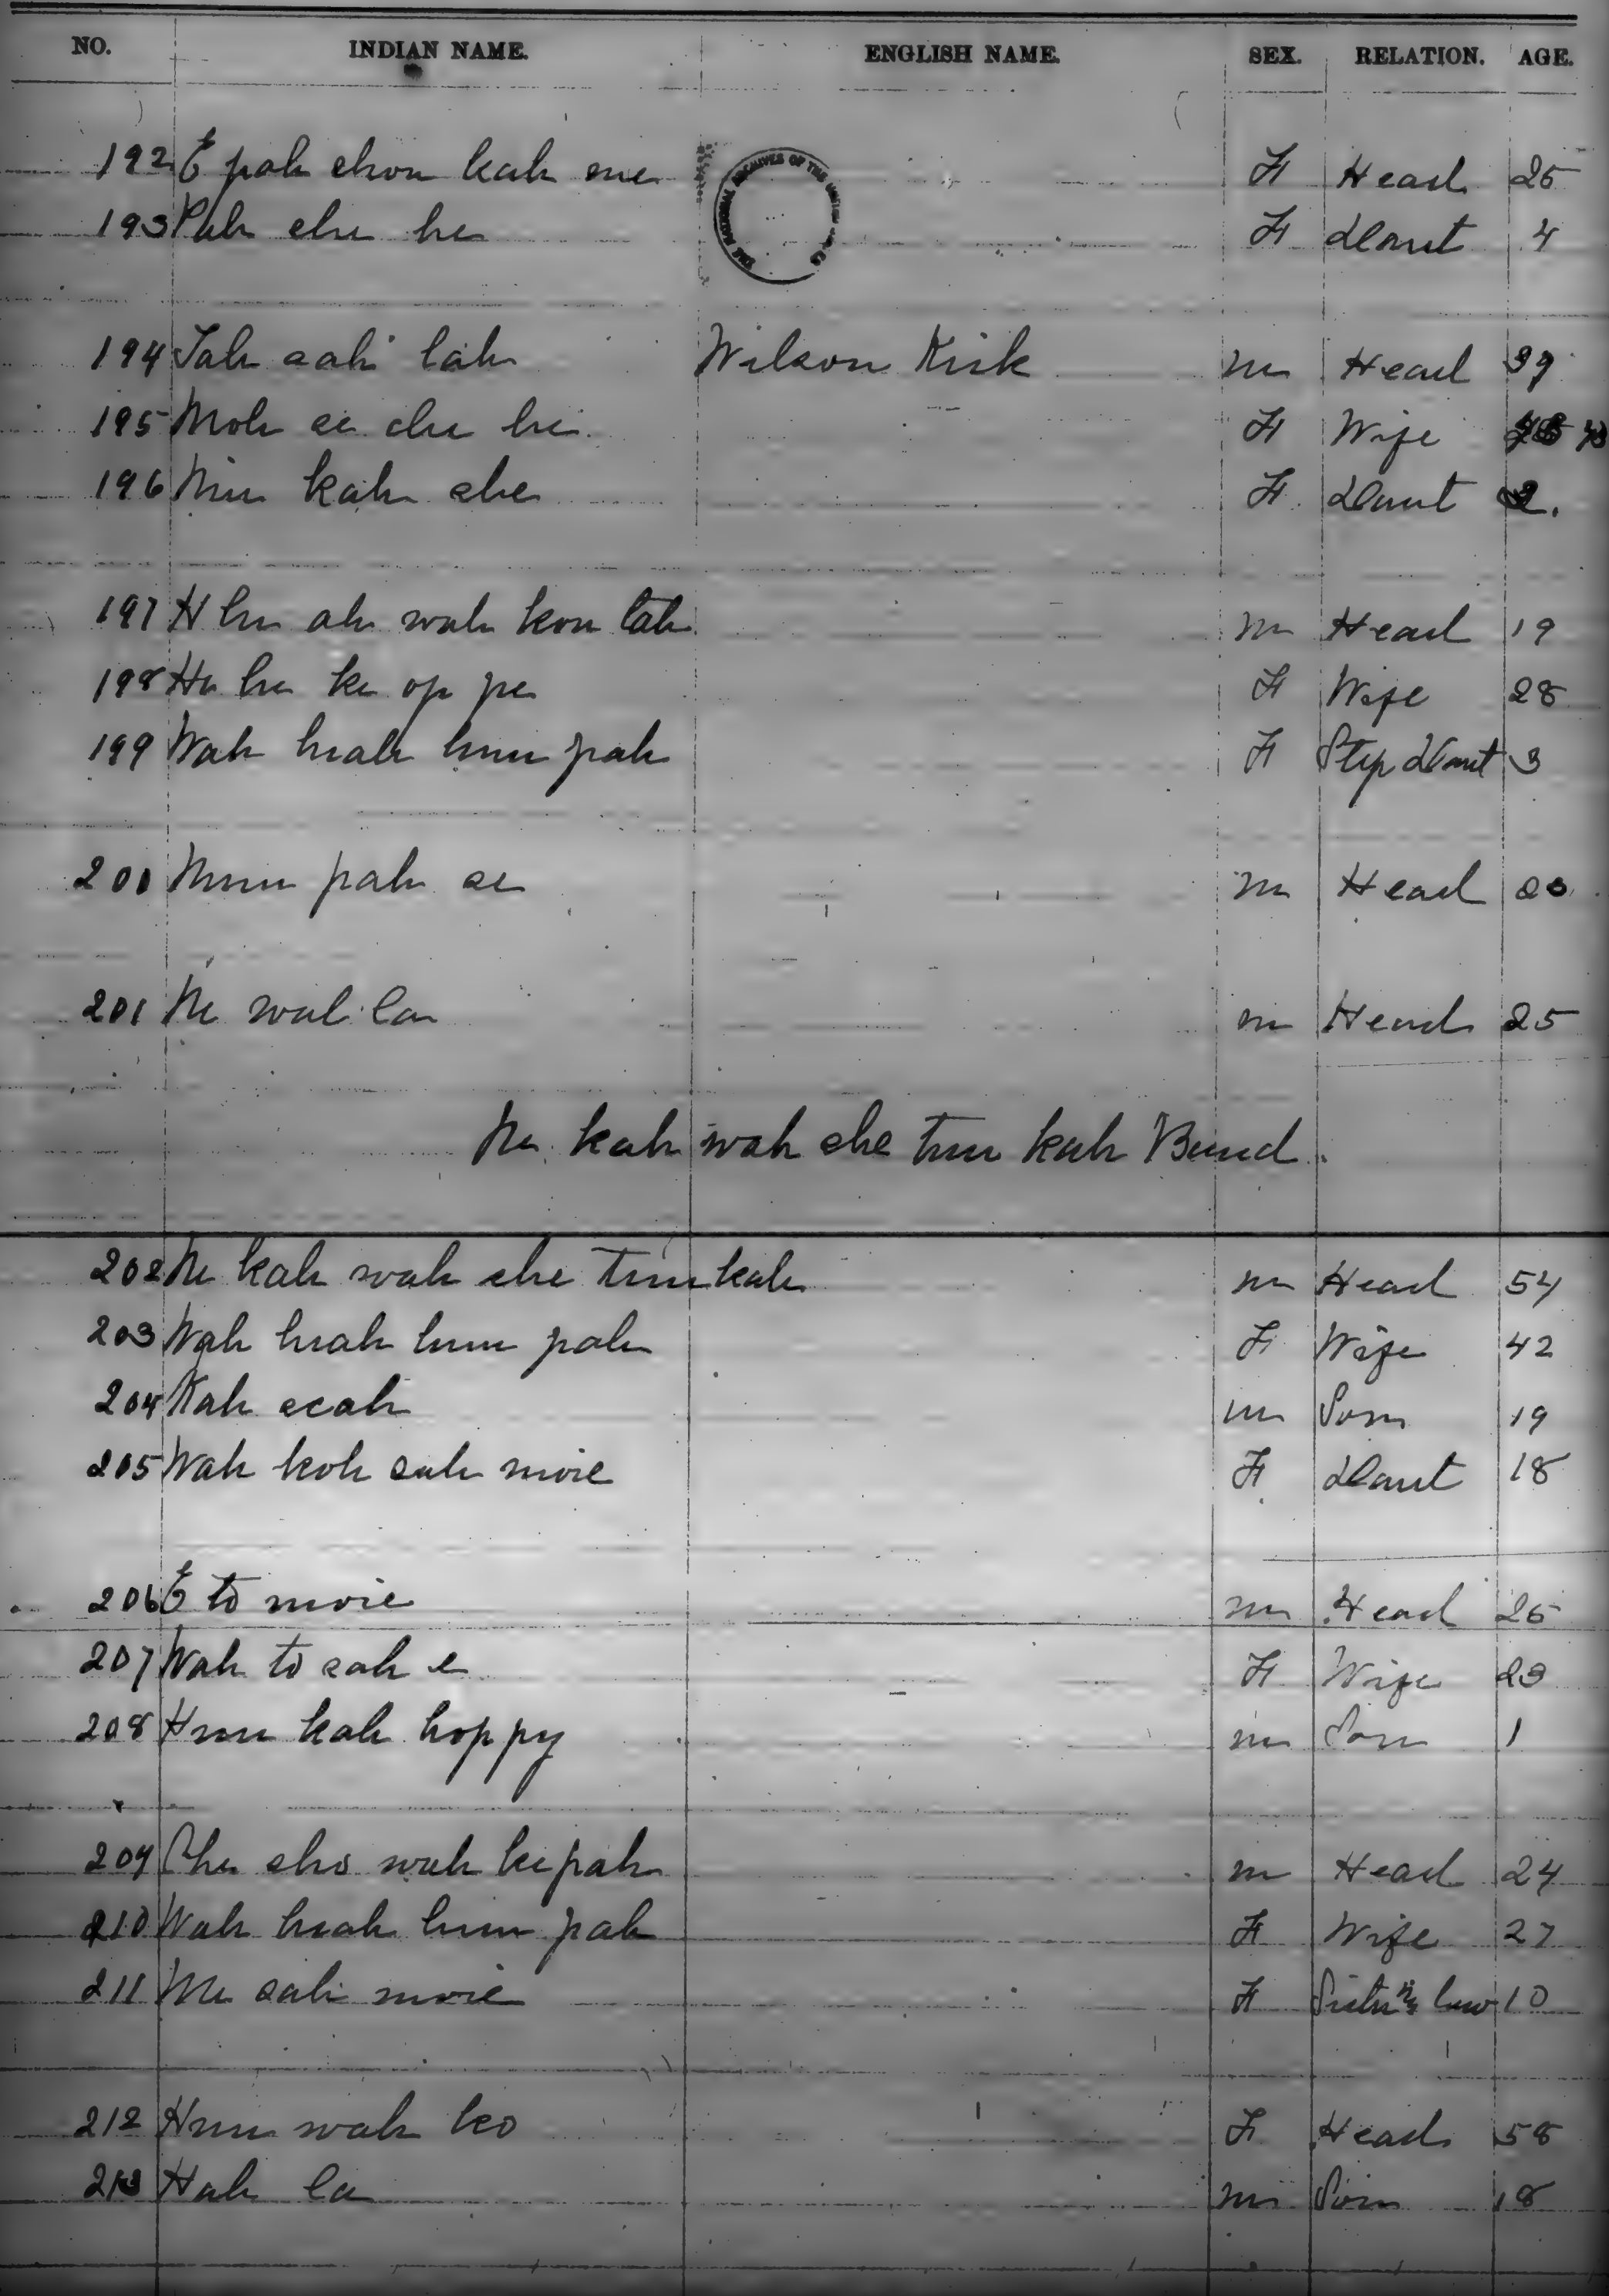 NO. INDIAN NAME. ENGLISH NAME. SEX. RELATION. AGE.
THE NATIONAL ARCHIVES OF THE UNITED STATES
192 E pah shon kah me F Head 25
193 Pah she he F Daut 4
194 Tah sah lah Wilson Kirk M Head 39
195 Moh se che he F Wife
196 Min kah she F Daut 2.
197 H lu ah wah kon tah M Head 19
198 He he ke op pe F Wife 28
199 Wah hrah lum pah F Step Daut 3
200 Num pah se M Head 20
201 Ne wal la M Head 25
Ne kah wah she tun kah Band.
202 Ne kah wah she tun kah M Head 54
203 Wah hrah lum pah F Wife 42
204 Kah scah M Son 19
205 Wah koh sah moie F Daut 18
206 E to moie M Head 25
207 Wah to sah e F Wife 23
208 Hun kah hoppy M Son 1
209 Che sho wah ke pah M Head 24
210 Wah hrah lum pah F Wife 27
211 Me sah moie F Sister in law 10
212 Hun wah ko F Head 58
213 Hah la M Son 18